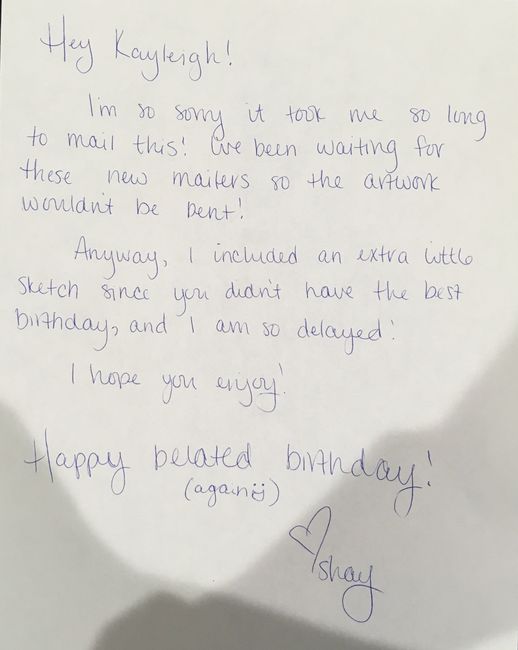 Hey Kayleigh!
I'm so sorry it took me so long
to mail this! I've been waiting for
these new mailers so the artwork
wouldn't be bent!
Anyway, I included an extra little
sketch since you didn't have the best
birthday, and I am so delayed!
I hope you enjoy!
Happy belated birthday!
(again☺)
♡shay